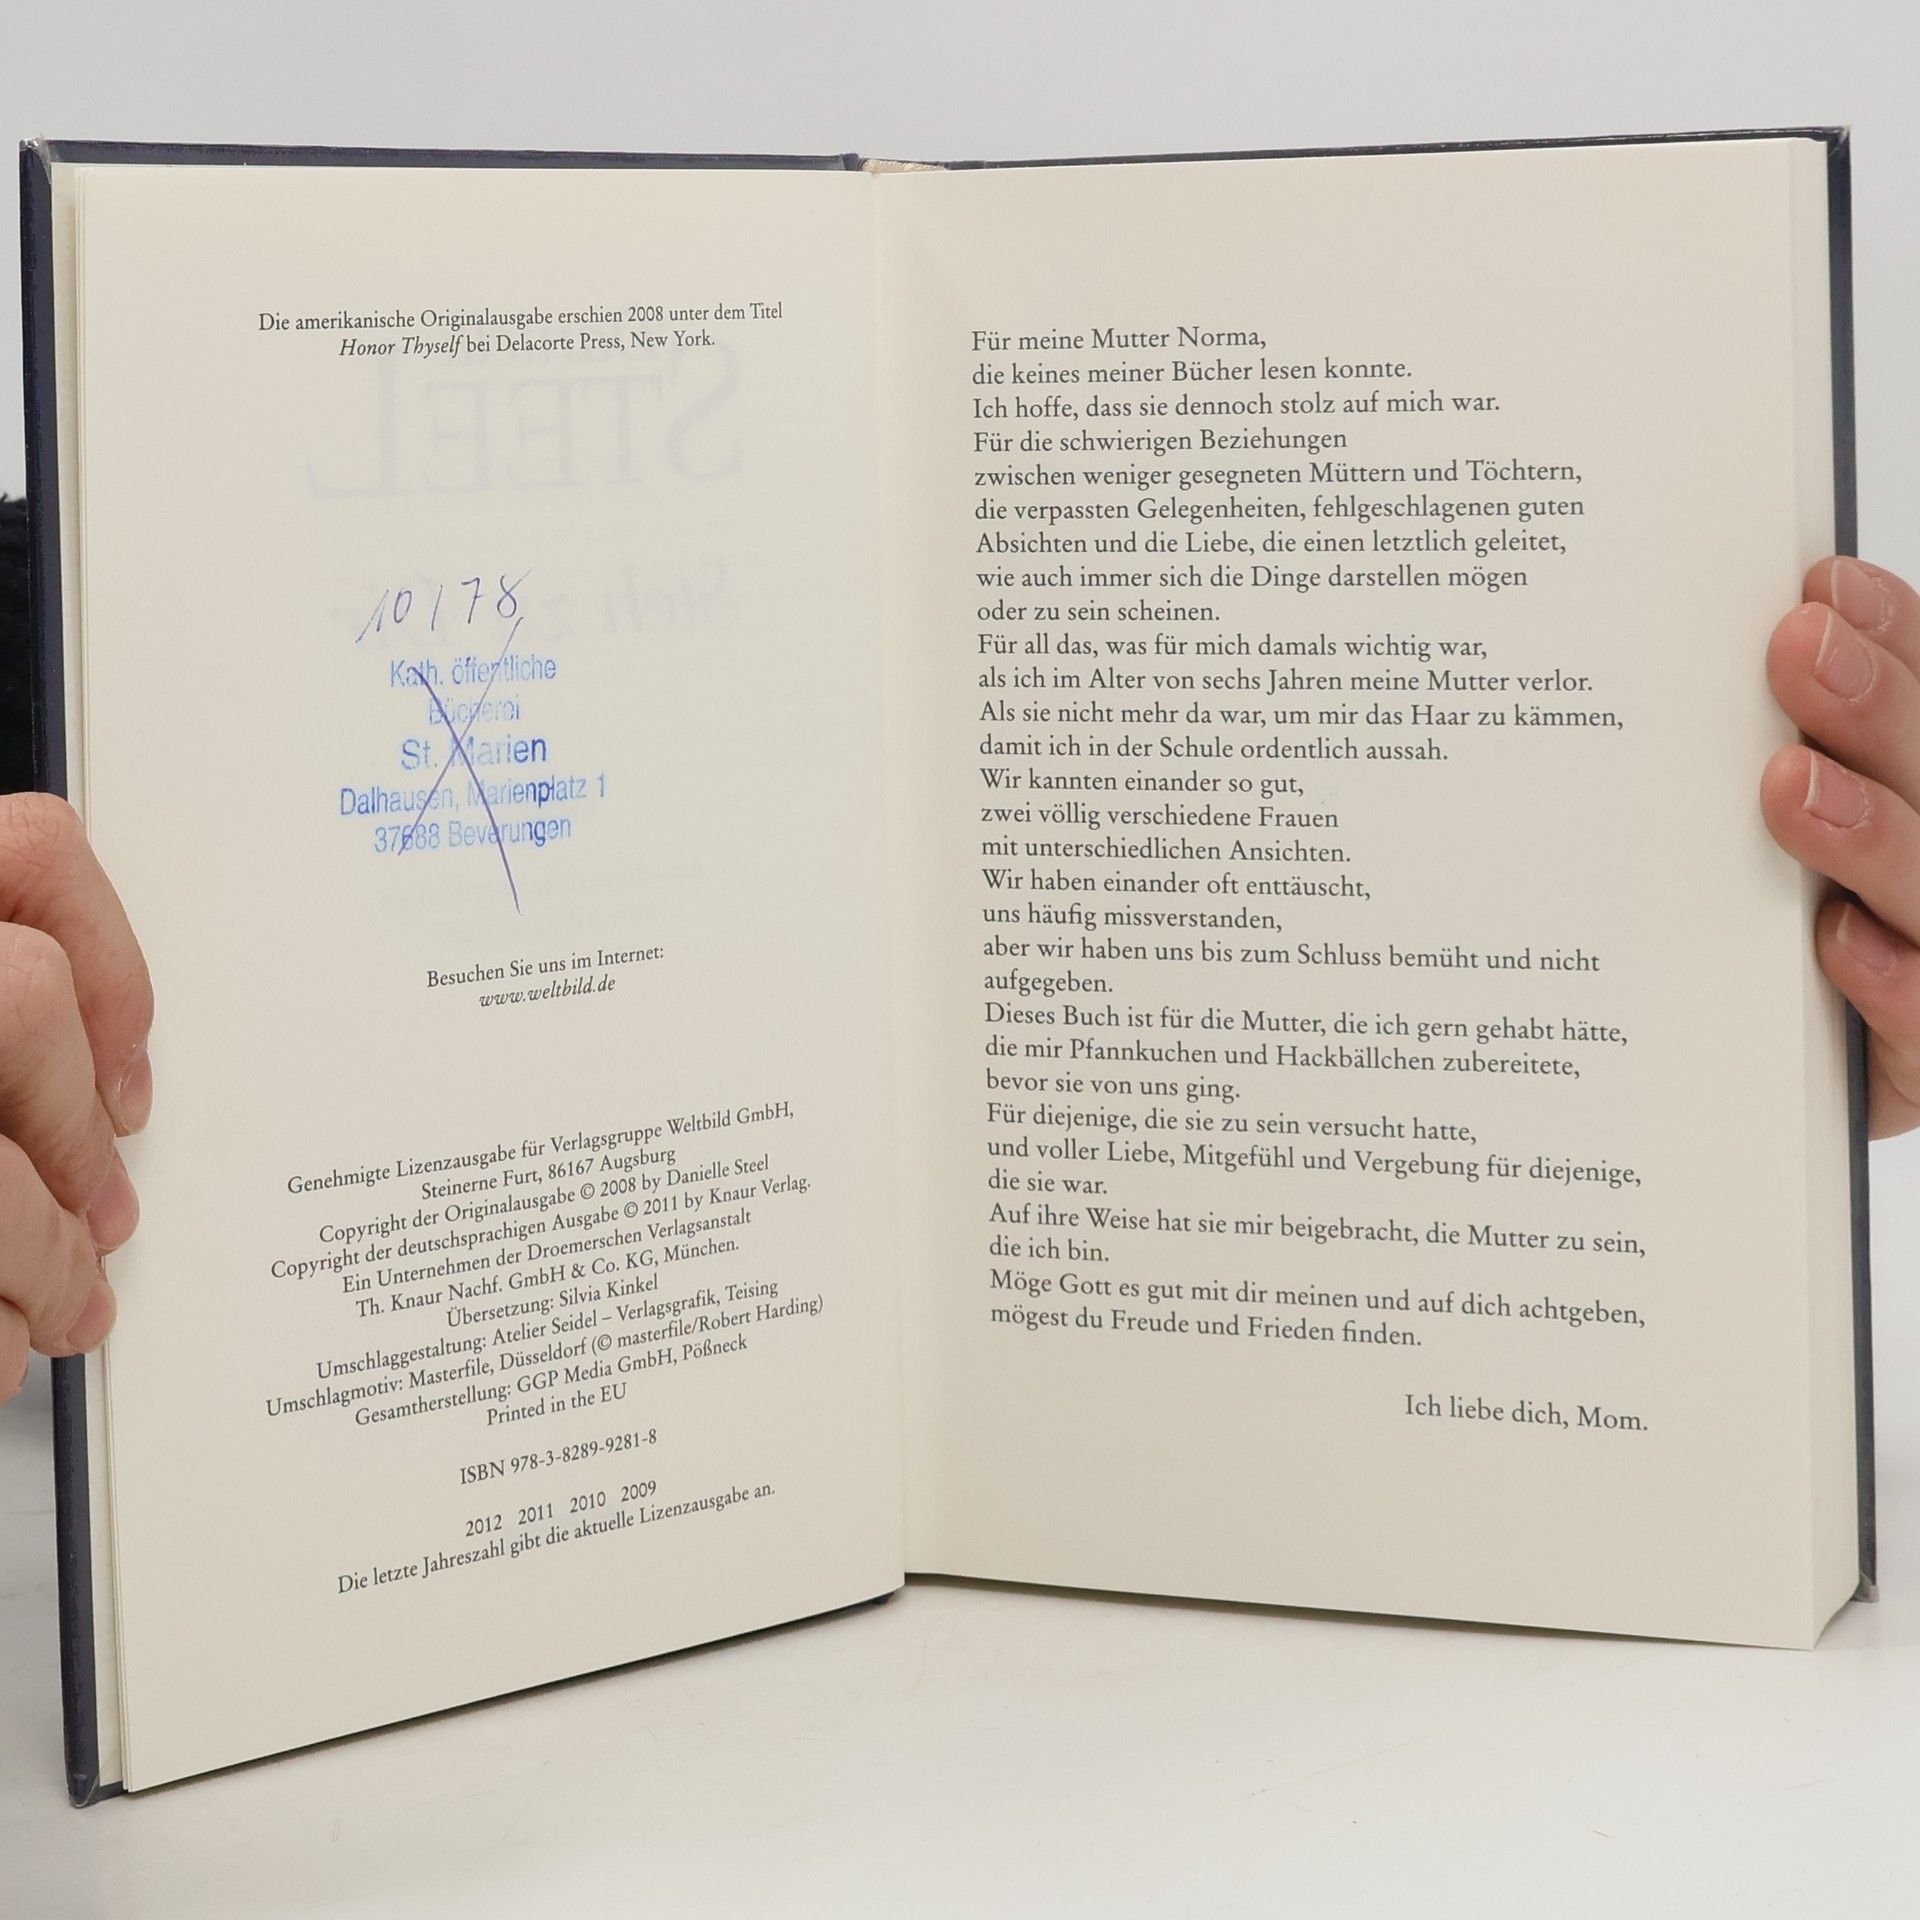 Die amerikanische Originalausgabe erschien 2008 unter dem Titel
Honor Thyself bei Delacorte Press, New York.
10/78
Kath. öffentliche
Bücherei
St. Marien
Dalhausen, Marienplatz 1
37688 Beverungen
Besuchen Sie uns im Internet:
www.weltbild.de
Genehmigte Lizenzausgabe für Verlagsgruppe Weltbild GmbH,
Steinerne Furt, 86167 Augsburg
Copyright der Originalausgabe © 2008 by Danielle Steel
Copyright der deutschsprachigen Ausgabe © 2011 by Knaur Verlag.
Ein Unternehmen der Droemerschen Verlagsanstalt
Th. Knaur Nachf. GmbH & Co. KG, München.
Übersetzung: Silvia Kinkel
Umschlaggestaltung: Atelier Seidel – Verlagsgrafik, Teising
Umschlagmotiv: Masterfile, Düsseldorf (© masterfile/Robert Harding)
Gesamtherstellung: GGP Media GmbH, Pößneck
Printed in the EU
ISBN 978-3-8289-9281-8
2012 2011 2010 2009
Die letzte Jahreszahl gibt die aktuelle Lizenzausgabe an.
Für meine Mutter Norma,
die keines meiner Bücher lesen konnte.
Ich hoffe, dass sie dennoch stolz auf mich war.
Für die schwierigen Beziehungen
zwischen weniger gesegneten Müttern und Töchtern,
die verpassten Gelegenheiten, fehlgeschlagenen guten
Absichten und die Liebe, die einen letztlich geleitet,
wie auch immer sich die Dinge darstellen mögen
oder zu sein scheinen.
Für all das, was für mich damals wichtig war,
als ich im Alter von sechs Jahren meine Mutter verlor.
Als sie nicht mehr da war, um mir das Haar zu kämmen,
damit ich in der Schule ordentlich aussah.
Wir kannten einander so gut,
zwei völlig verschiedene Frauen
mit unterschiedlichen Ansichten.
Wir haben einander oft enttäuscht,
uns häufig missverstanden,
aber wir haben uns bis zum Schluss bemüht und nicht
aufgegeben.
Dieses Buch ist für die Mutter, die ich gern gehabt hätte,
die mir Pfannkuchen und Hackbällchen zubereitete,
bevor sie von uns ging.
Für diejenige, die sie zu sein versucht hatte,
und voller Liebe, Mitgefühl und Vergebung für diejenige,
die sie war.
Auf ihre Weise hat sie mir beigebracht, die Mutter zu sein,
die ich bin.
Möge Gott es gut mit dir meinen und auf dich achtgeben,
mögest du Freude und Frieden finden.
Ich liebe dich, Mom.